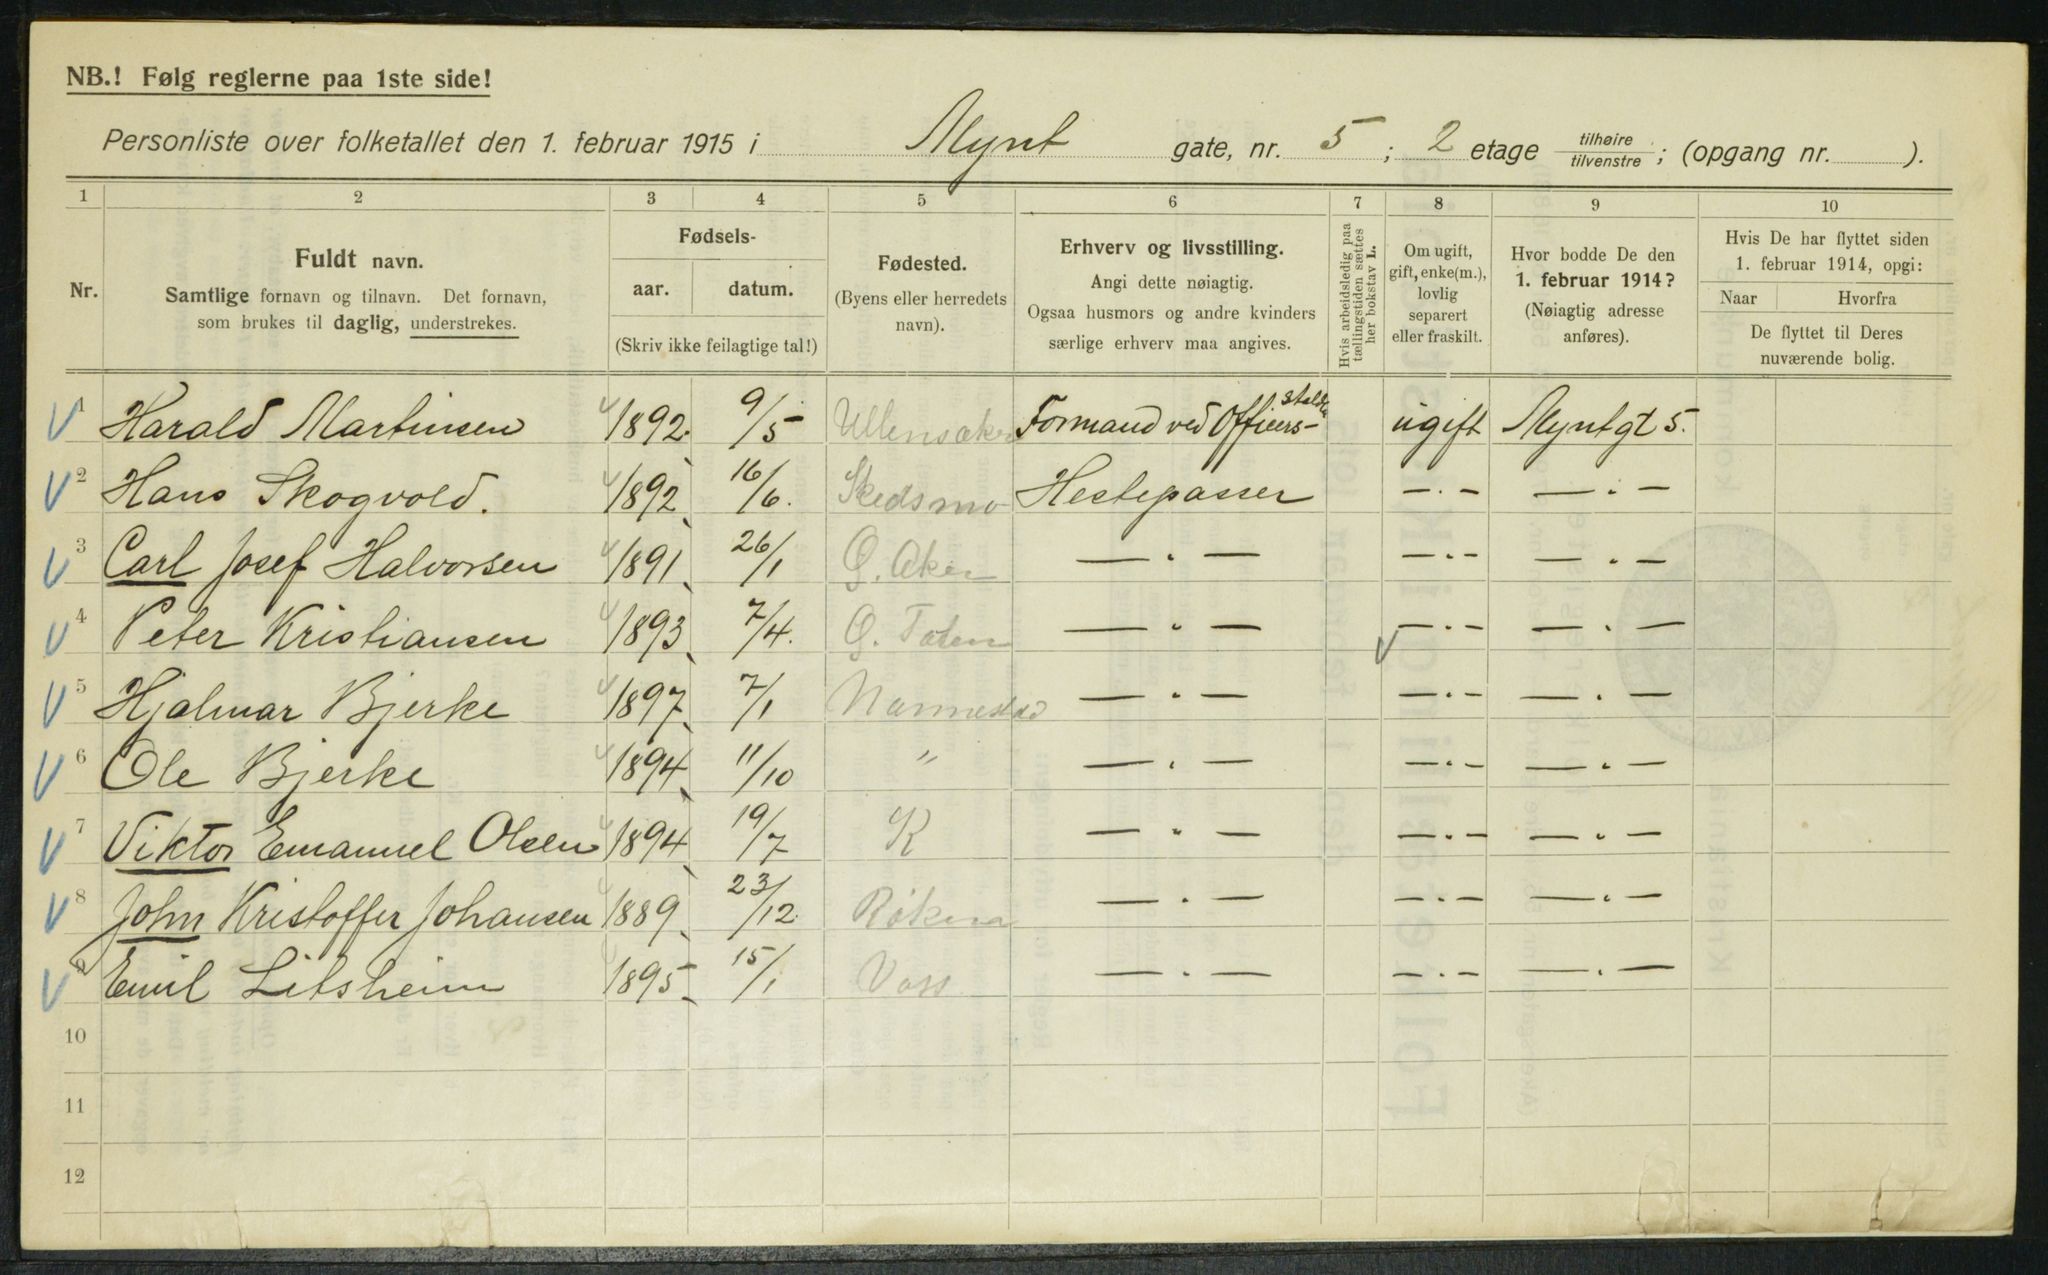 NB.! Følg reglerne paa 1ste side!
Personliste over folketallet den 1. februar 1915 i Mynt gate, nr. 5 ; 2 etage tilhøire tilvenstre ; (opgang nr. ).
1 2 3 4 5 6 7 8 9 10
Nr.
Fuldt navn.
Samtlige fornavn og tilnavn. Det fornavn,
som brukes til daglig, understrekes.
Fødsels-
aar. datum.
(Skriv ikke feilagtige tal!)
Fødested.
(Byens eller herredets
navn).
Erhverv og livsstilling.
Angi dette nøiagtig.
Ogsaa husmors og andre kvinders
særlige erhverv maa angives.
Hvis arbeidsledig paa
tællingstiden sættes
her bokstav L.
Om ugift,
gift, enke(m.),
lovlig
separert
eller fraskilt.
Hvor bodde De den
1. februar 1914?
(Nøiagtig adresse
anføres).
Hvis De har flyttet siden
1. februar 1914, opgi:
Naar Hvorfra
De flyttet til Deres
nuværende bolig.
1 Harald Martinsen 1892. 9/5 Ullensaker Formand ved Officers- ugift Myntgt 5.
2 Hans Skogvold. 1892 16/6. Skedsmo Hestepasser —.— —.—
3 Carl Josef Halvorsen 1891 26/1 Ø. Aker —.— —.— —.—
4 Peter Kristiansen 1893 7/4. Ø. Toten —.— —.— —.—
5 Hjalmar Bjerke 1897 7/1 Nannestad —.— —.— —.—
6 Ole Bjerke 1894 11/10 " —.— —.— —.—
7 Viktor Emanuel Olsen 1894 19/7 K —.— —.— —.—
8 John Kristoffer Johansen 1889 23/12 Røken —.— —.— —.—
9 Emil Litsheim 1895 15/1 Voss —.— —.— —.—
10
11
12